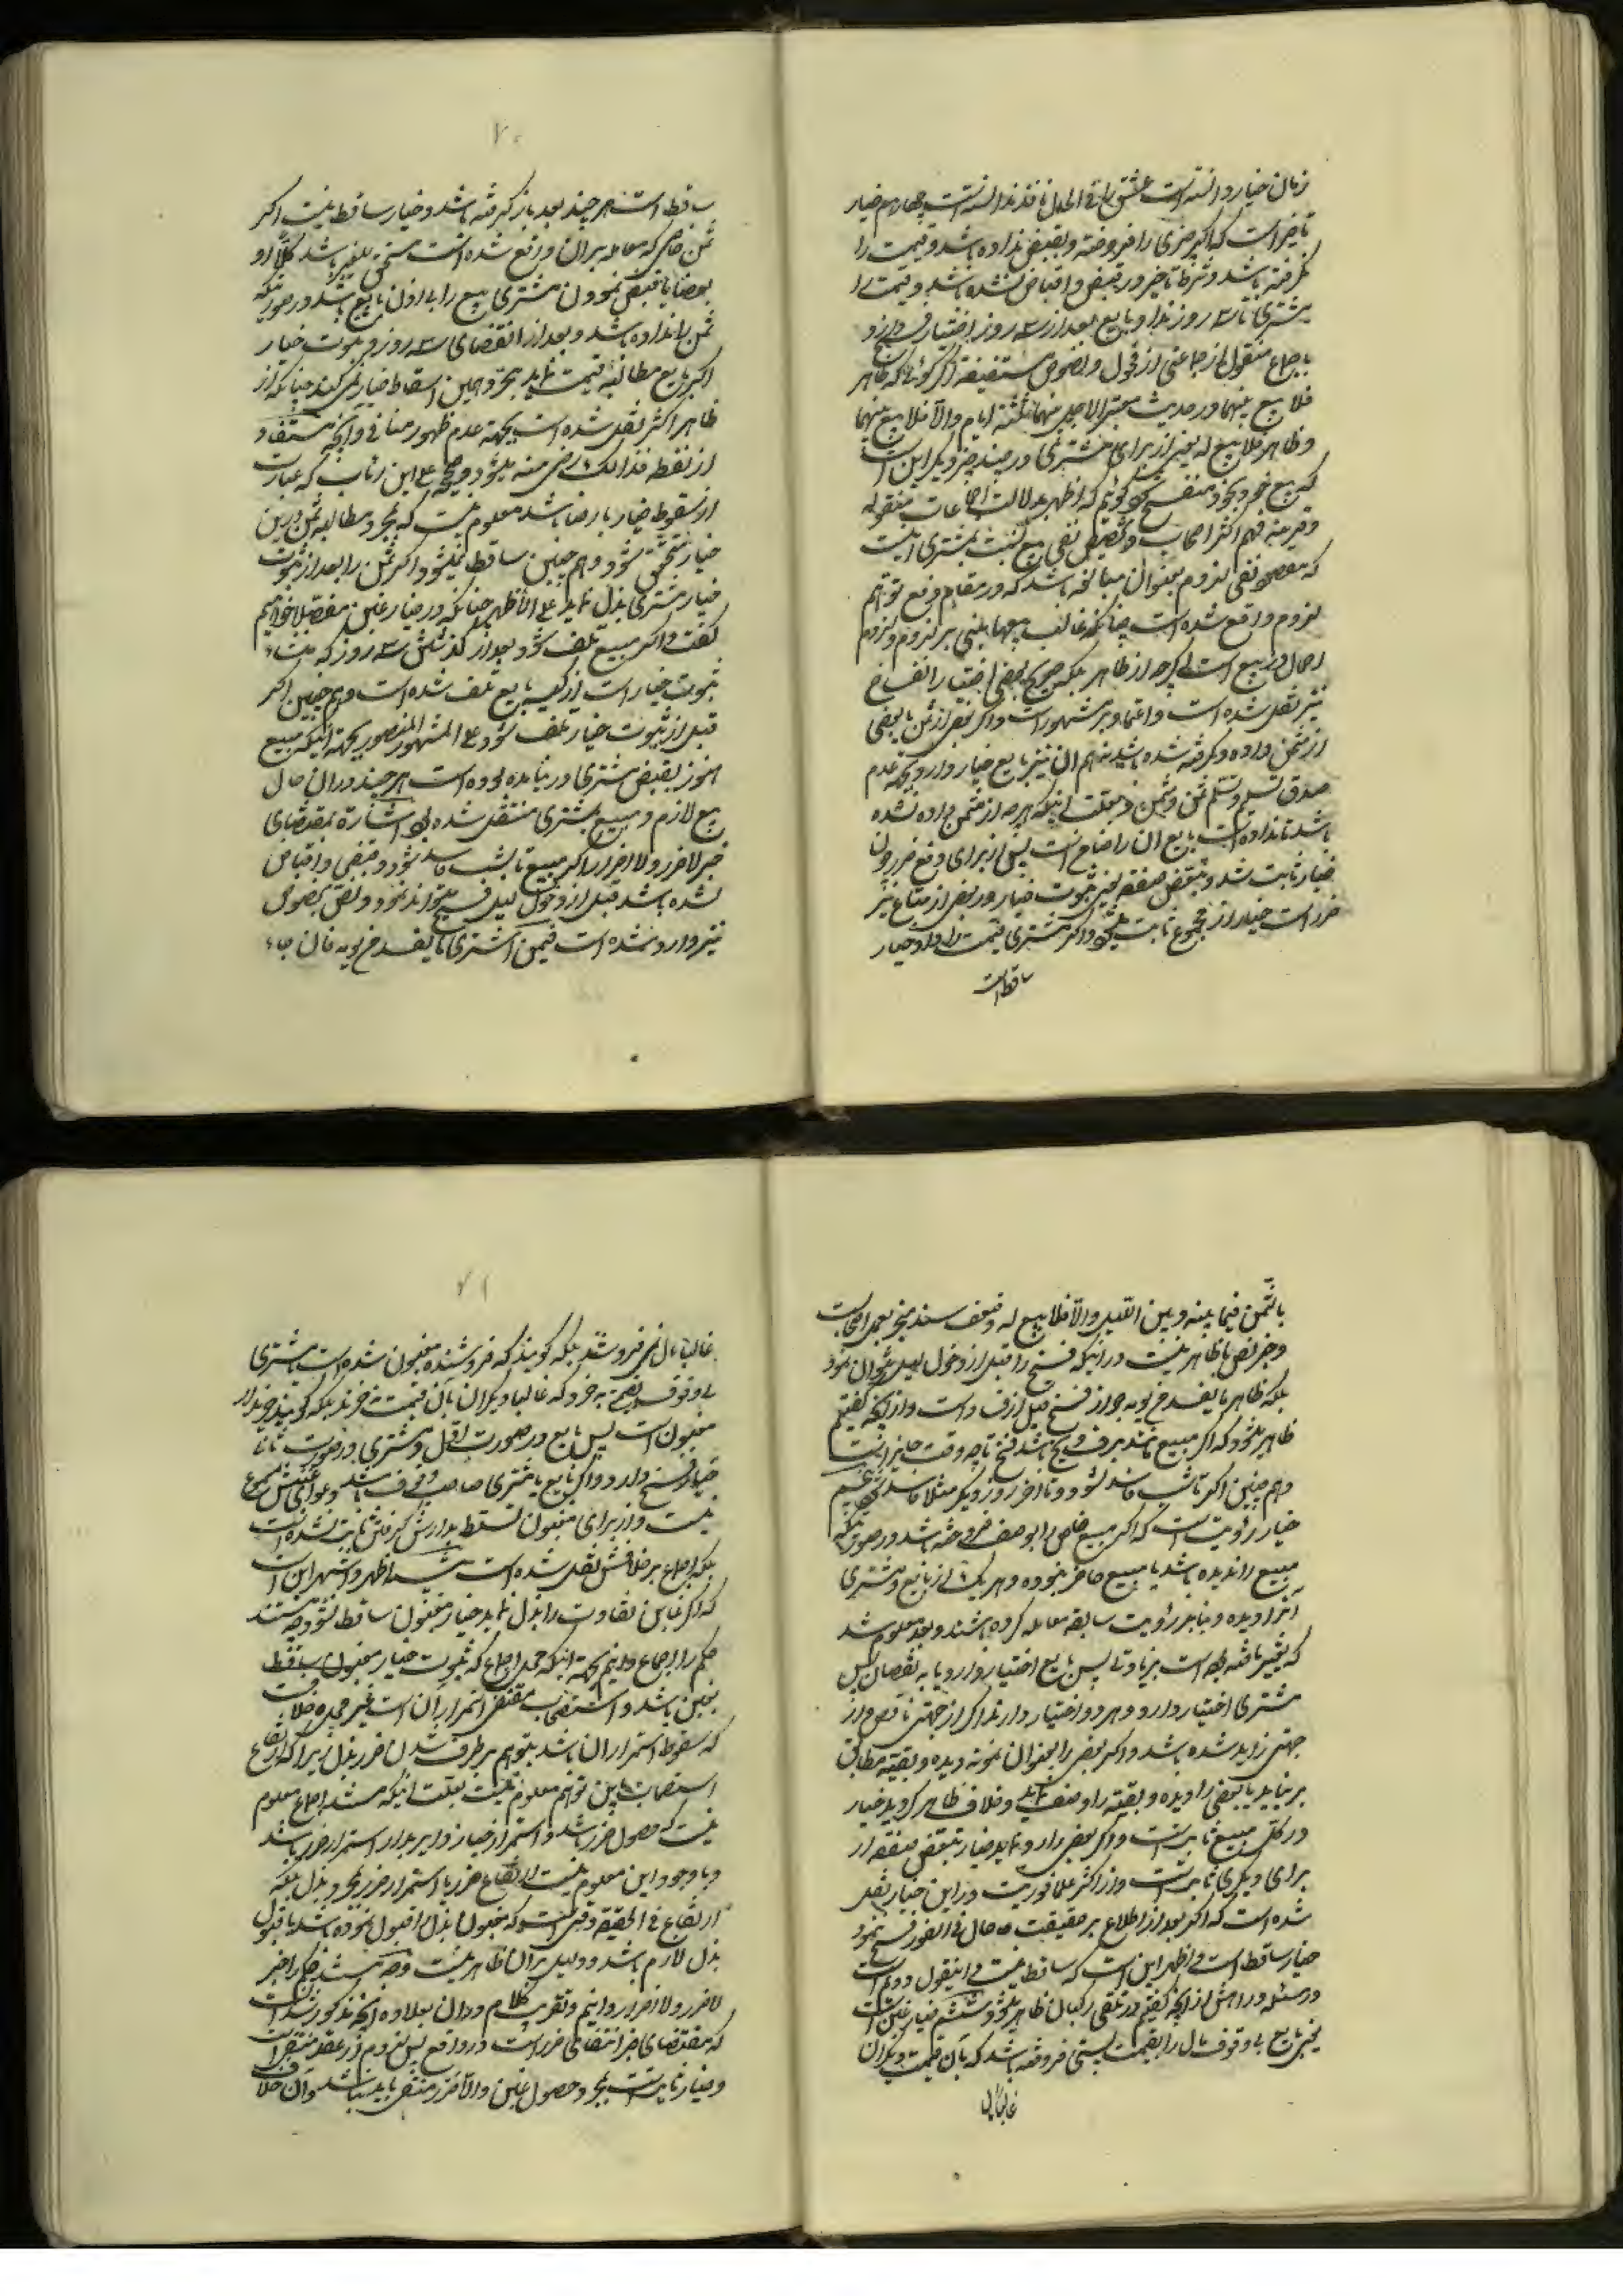 زمان خیار دانسته است عتق را فی الحال نافذ ندانسته است چهارم خیار
تاخیر است که اگر چیزی را فروخته و بقبض نداده باشد و قیمت را
نگرفته باشد و شرط تاخیر در قبض و اقباض نشده باشد و قیمت را
مشتری تا سه روز نداد بایع بعد از سه روز اختیار فسخ دارد
باجماع منقول از جماعتی از فحول و نصوص مستفیضه اگر گوئی که ظاهر
فلا بیع بینهما در حدیث معتبر الاجل بینهما ثلثة ایام والا فلا بیع بینهما
و ظاهر فلا بیع له بغیر از برای مشتری در چند خبر دیگر این است
که بیع خودبخود منفسخ گوئیم که اظهر بدلالت اجماعات منقوله
و قرینه فهم اکثر اصحاب و تخصیص نفی بیع نسبت بمشتری اینست
که مقصود نفی لزوم بعنوان مبالغه باشد که در مقام رفع توهم
لزوم واقع شده است چنانکه غالب بیعها مبنی بر لزوم و لزوم
اصل در بیع است اگرچه از ظاهر بلکه صریح بعضی اختیار انفساخ
نیز نقل شده است و اعتماد بر مشهور است و اگر بعض از ثمن یا بعضی
از مثمن داده و گرفته شده باشد باز هم آن نیز بایع خیار دارد بجهة عدم
صدق تسلیم و تسلم ثمن و مثمن و بعلت اینکه هرچه از مثمن داده نشده
باشد تا نداده است بایع آن را ضامن است پس از برای دفع ضرر چون
خیار ثابت شد و تبعض صفقه یعنی ثبوت خیار در بعض از متاع نیز
ضرر است خیار از مجموع ثابت میشود و اگر مشتری قیمت را داد خیار
ساقط است
۷۰
ساقط است هر چند بعد باز گرفته باشد و خیار ساقط نیست اگر
ثمن خاصی که معامله بر آن واقع شده است مستحق بلغیر باشد کلاً او
بعضاً یا قبض نمودن مشتری مبیع را بی اذن بایع باشد در صورتیکه
ثمن را نداده باشد و بعد از انقضای سه روز و ثبوت خیار
اگر بایع مطالبهٔ قیمت نماید بمجرد همین اسقاط خیار نمیکند چنانکه از
ظاهر اکثر نقل شده است بجهة عدم ظهور منافی و آنچه مستفاد
از لفظ فذالک رضی منه میشود و صحیحه علی ابن رئاب که عبارت
از سقوط خیار با رضا باشد معلوم نیست که بمجرد مطالبه ثمن در این
خیار متحقق شود و هم چنین ساقط نمیشود اگر ثمن را بعد از ثبوت
خیار مشتری بذل نماید علی الاظهر چنانکه در خیار غبن مفصلا خواهیم
گفت و اگر مبیع تلف شود بعد از گذشتن سه روز که منشاء
ثبوت خیار است از کیسه بایع تلف شده است و هم چنین اگر
قبل از ثبوت خیار تلف شود علی المشهور المنصور بجهة اینکه مبیع
هنوز بقبض مشتری در نیامده بوده است هر چند در آن حال
بیع لازم و مبیع بمشتری منتقل شده بود اشارة بمقتضای
خبر لاضرر و لااضرار اگر مبیع تا بشب فاسد شود و قبض و اقباض
نشده باشد قبل از دخول لیل فسخ میتواند نمود و نص بخصوص
نیز وارد شده است فیمن اشتری ما یفسد من یومه فان جاء
بالثمن فیما بینه و بین اللیل والا فلا بیع له و ضعف سند منجبر بعمل اصحاب
و جز نص با ظاهر نیست در اینکه فسخ را قبل از دخول لیل میتوان نمود
بلکه ظاهر ما یفسد من یومه جواز فسخ قبل از فساد است و از آنچه گفتیم
ظاهر میشود که اگر مبیع مانند برف و یخ باشد فسخ تا چه وقت جایز است
و هم چنین اگر تا شب فاسد نشود و تا آخر روز دیگر مثلا فاسد شود پنجم
خیار رؤیت است که اگر مبیع خاصی را بوصف فروخته باشد در صورتیکه
مبیع را ندیده باشد یا مبیع حاضر نبوده و هر یک از بایع و مشتری
آنرا دیده و بنابر رؤیت سابقه معامله کرده باشند و بعد معلوم شد
که تغییر یافته بوده است بزیادتی پس بایع اختیار دارد یا به نقصان پس
مشتری اختیار دارد و هر دو اختیار دارند اگر از جهتی ناقص و از
جهتی زاید شده باشد و اگر بعض را بعنوان نمونه دیده و بقیه مطابق
برنیاید یا بعضی را دیده و بقیه را وصف نماید و خلاف ظاهر گردید خیار
در کل مبیع ثابت است و اگر بعض را رد نماید خیار تبعض صفقه از
برای دیگری ثابت است و از اکثر علما فوریت در این خیار نقل
شده است که اگر بعد از اطلاع بر حقیقت حال فی الفور فسخ ننمود
خیار ساقط است و اظهر این است که ساقط نیست و اینقول دوم است
در مسئله و راهش از آنچه گفتیم در تلقی رکبان ظاهر میشود ششم خیار غبن است
یعنی بایع بی وقوف مال را بقیمت پستی فروخته باشد که بآن قیمت دیگران
غالباً مال
۷۱
غالباً مال نمیفروشند بلکه گویند که فروشنده مغبون شده است یا مشتری
بی وقوف بقیمتی بخرد که غالبا دیگران بآن قیمت نخرند بلکه گویند خریدار
مغبون است پس بایع در صورت اول و مشتری در صورت ثانیا
خیار فسخ دارد و اگر بایع یا مشتری صاحب وقوف باشد دعوای غبنش مسموع
نیست و از برای مغبون تسلط بر ارش گرفتن ثابت نشده است
بلکه اجماع بر خلافش نقل شده است و اظهر و اشهر این است
که اگر غابن تفاوت را بذل نماید خیار مغبون ساقط نشود چه مستند
حکم را اجماع دانیم بجهة اینکه محل اجماع که ثبوت خیار مغبول ساقط
بغبن باشد و استصحاب مقتضی استمرار آن است غیر محل خلاف
که سقوط استمرار آن باشد بتوهم برطرف شدن ضرر ببذل زیرا که ارتفاع
استصحاب باین توهم معلوم نیست بعلت اینکه مستند اجماع معلوم
نیست که حصول ضرر باشد و استمرار خیار دایر مدار استمرار ضرر باشد
و باوجود این معلوم نیست ارتفاع ضرر یا استمرار ضرر بمجرد بذل بلکه
ارتفاع فی الحقیقه وقتی است که مغبون بذل را قبول نموده باشد یا قبول
بذل لازم باشد و دلیل بر آن ظاهر نیست و چه مستند حکم را خبر
لاضرر و لااضرار دانیم و تقریب کلام در آن بعلاوه آنچه مذکور شد این است
که مقتضای خبر انتفای ضرر است در واقع پس لزوم از عقد منتفی است
و خیار ثابت است بمجرد حصول غبن والا ضرر منتفی باید نباشد و آن خلاف